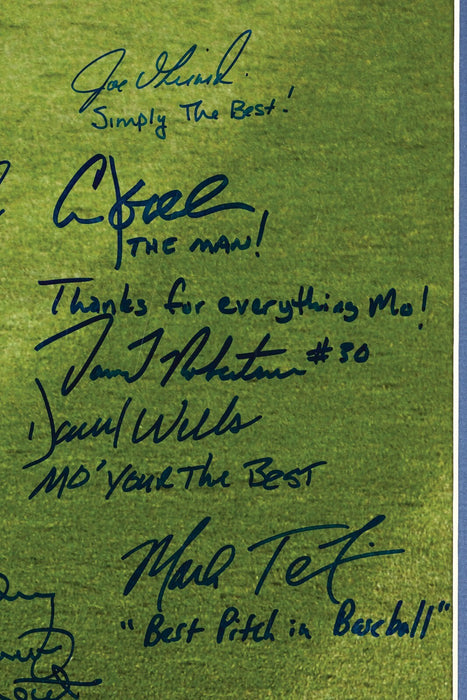 Joe Girardi
Simply The Best!
THE MAN!
Thanks for everything Mo!
David Robertson #30
David Wells
MO' YOUR THE BEST
Mark Te
"Best Pitch in Baseball"